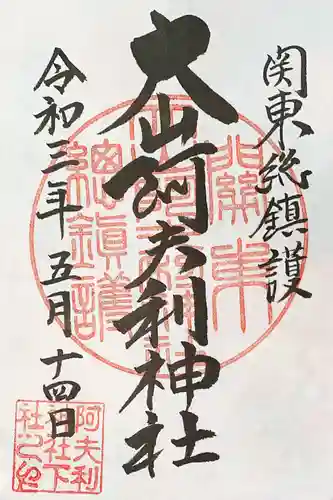 関東総鎮護
大山阿夫利神社
令和三年五月十四日
阿夫利
神社下
社之印